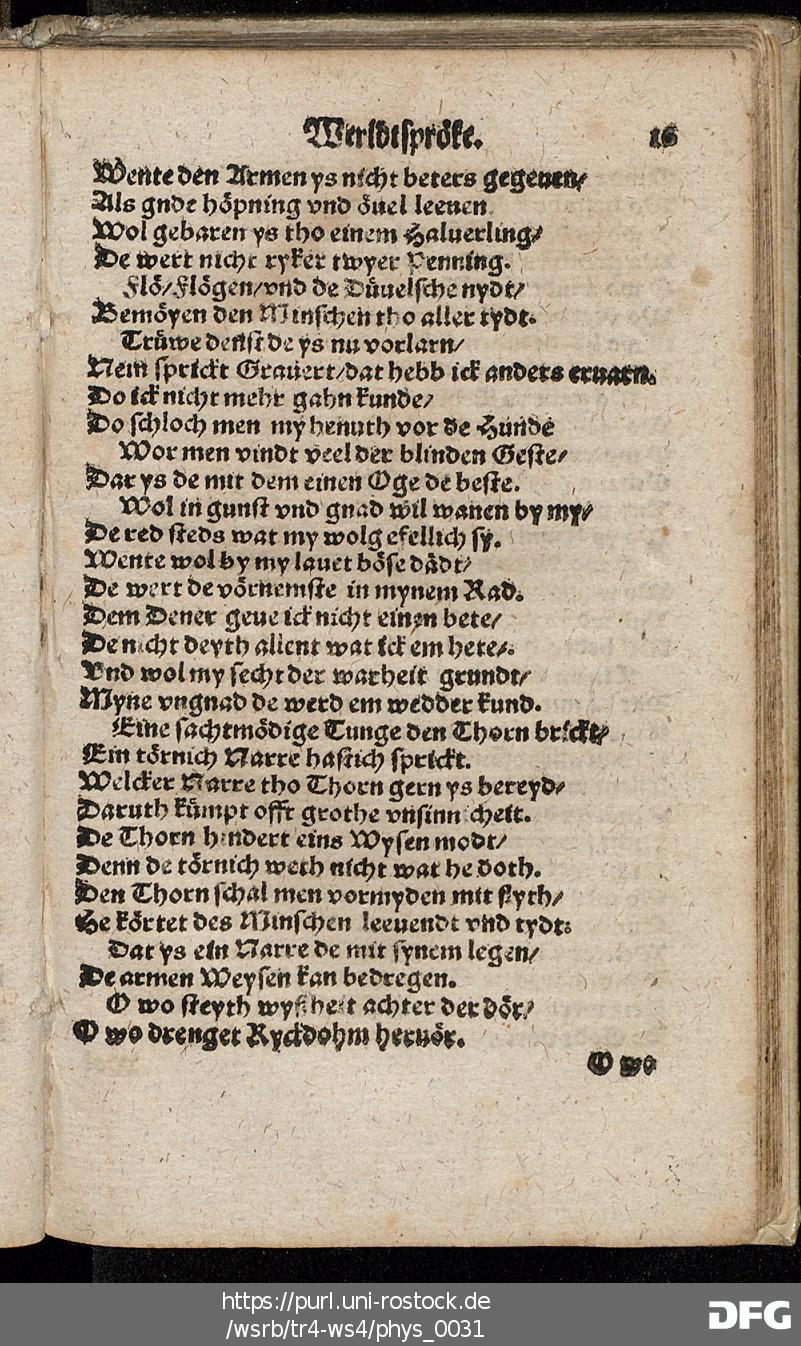 Werldtspröke. 16
Wente den Armen ys nicht beters gegeuen/
Als gude höpning vnd öuel leeuen
Wol gebaren ys tho einem Haluerling/
De wert nicht ryker twyer Penning.
Flö/Flögen/vnd de Düuelsche nydt/
Bemöyen den Minschen tho aller tydt.
Trüwe denst de ys nu vorlarn/
Nein sprickt Grauert/dat hebb ick anders eruarn.
Do ick nicht mehr gahn kunde/
Do schloch men my henuth vor de Hunde
Wor men vindt veel der blinden Geste/
Dar ys de mit dem einen Oge de beste.
Wol in gunst vnd gnad wil wanen by my/
De red steds wat my wolgefellich sy.
Wente wol by my lauet böse dädt/
De wert de vörnemste in mynem Rad.
Dem Dener geue ick nicht einen bete/
De nicht deyth allent wat ick em hete/.
Vnd wol my secht der warheit grundt/
Myne vngnad de werd em wedder kund.
Eine sachtmödige Tunge den Thorn brickt/
Ein törnich Narre hastich sprickt.
Welcker Narre tho Thorn gern ys bereyd/
Daruth kümpt offt grothe vnsinnicheit.
De Thorn hindert eins Wysen modt/
Denn de törnich weth nicht wat he doth.
Den Thorn schal men vormyden mit flyth/
He körtet des Minschen leeuendt vnd tydt:
Dat ys ein Narre de mit synem legen/
De armen Weysen kan bedregen.
O wo steyth wyßheit achter der dör/
O wo drenget Ryckdohm heruör.
O wo
https://purl.uni-rostock.de
/wsrb/tr4-ws4/phys_0031
DFG